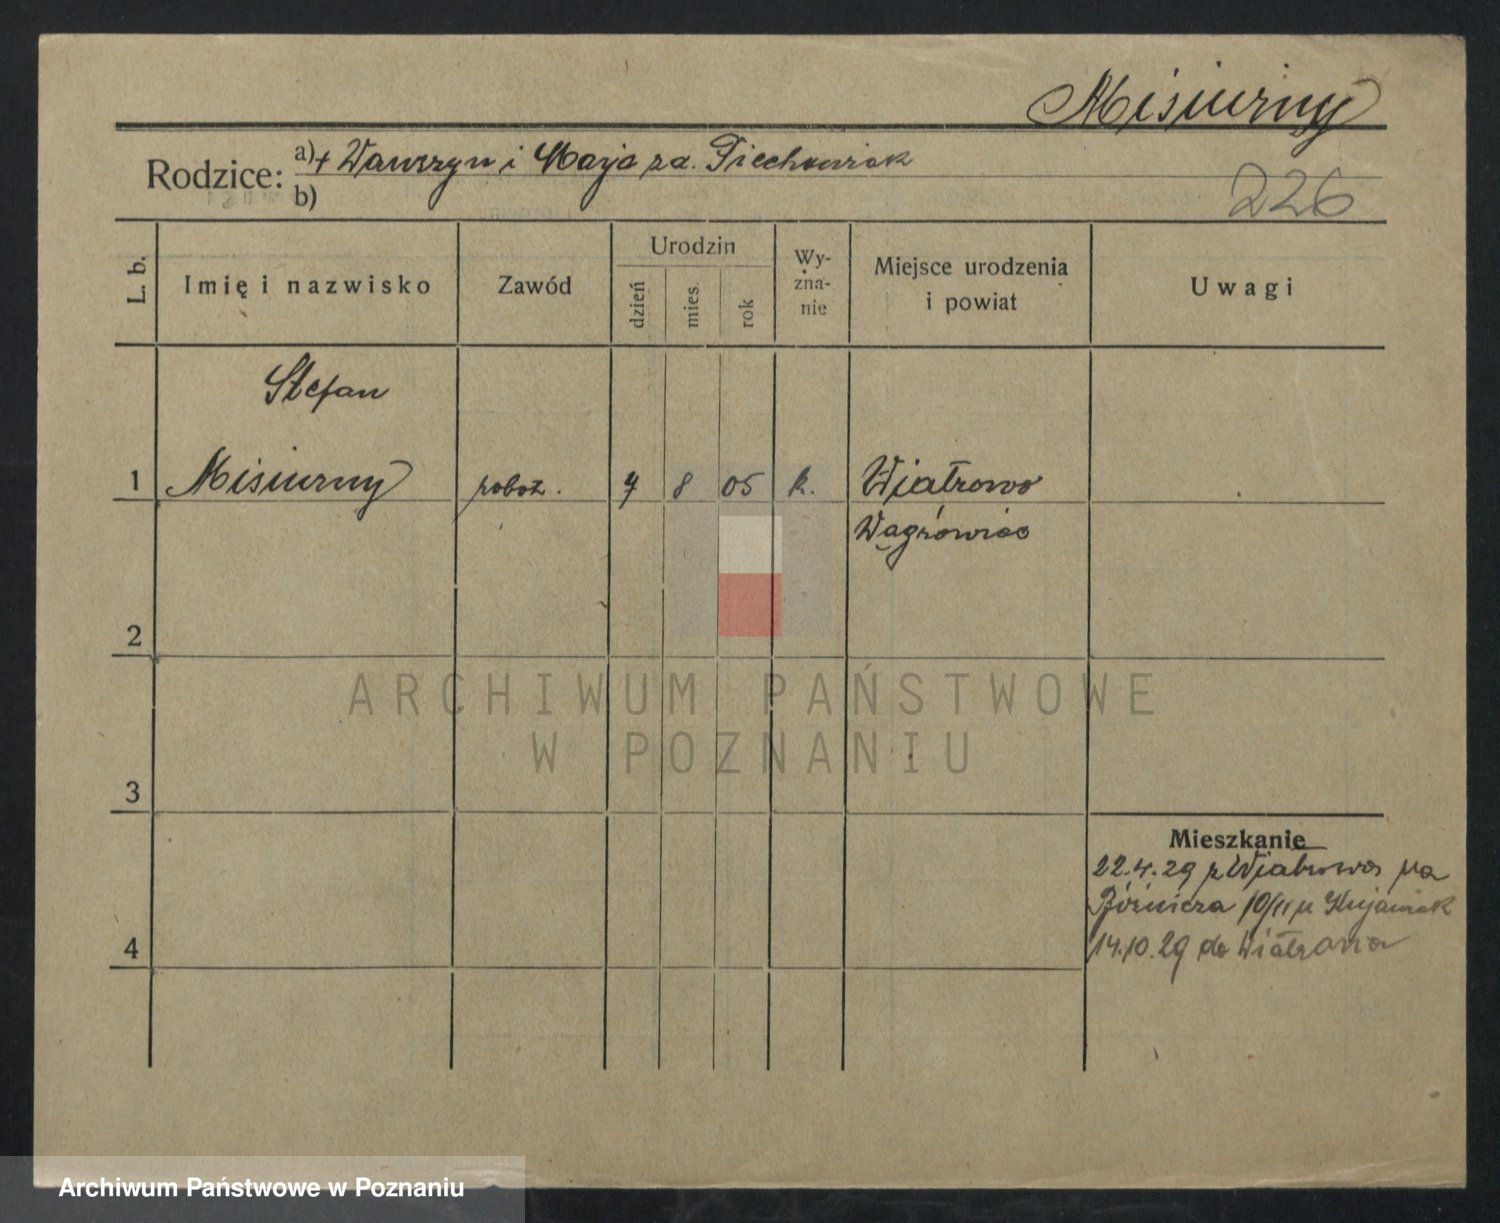 Misiurny
Rodzice: a) + Wawrzyn i Marja za. Piechowiak
b)
226
L. b.
Imię i nazwisko
Zawód
Urodzin
dzień
mies.
rok
Wy-
zna-
nie
Miejsce urodzenia
i powiat
Uwagi
Stefan
1 Misiurny robot. 7 8 05 k. Wiatrowo
Wągrówiec
2
ARCHIWUM PAŃSTWOWE
W POZNANIU
3
Mieszkanie
22.4.29 z Wiatrowo na
10/II u Kujawiak
4
14.10.29 do Wiatrowa
Archiwum Państwowe w Poznaniu